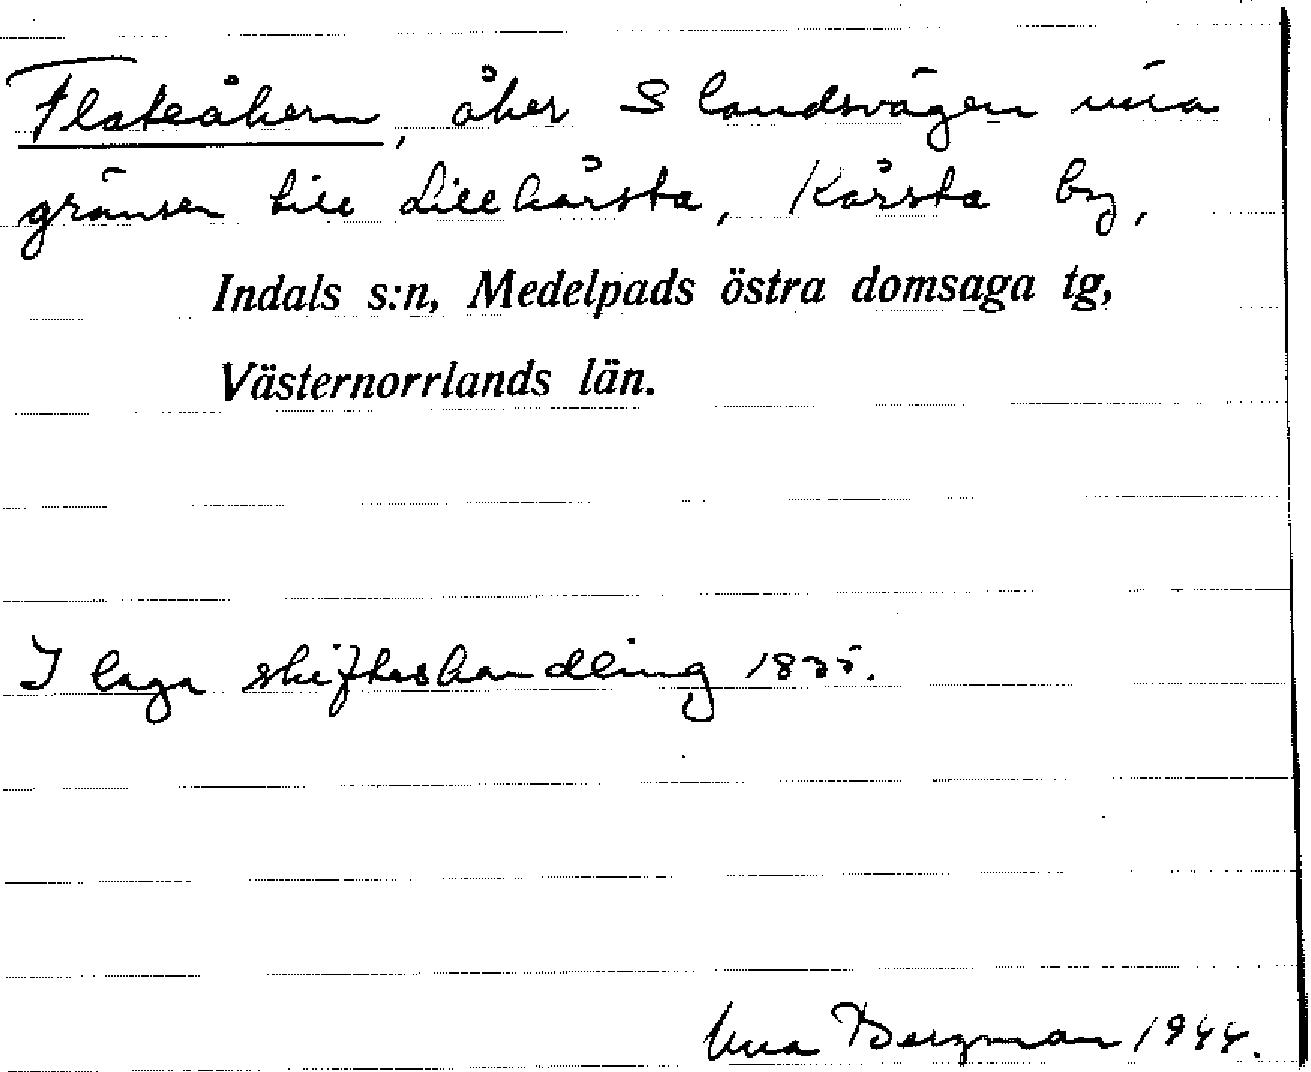 Flateåkern, åker S landsvägen nära
gränsen till Lillkårsta, Kårsta by,
Indals s:n, Medelpads östra domsaga tg,
Västernorrlands län.
I laga skifteshandling 1835.
Bergman 1944.